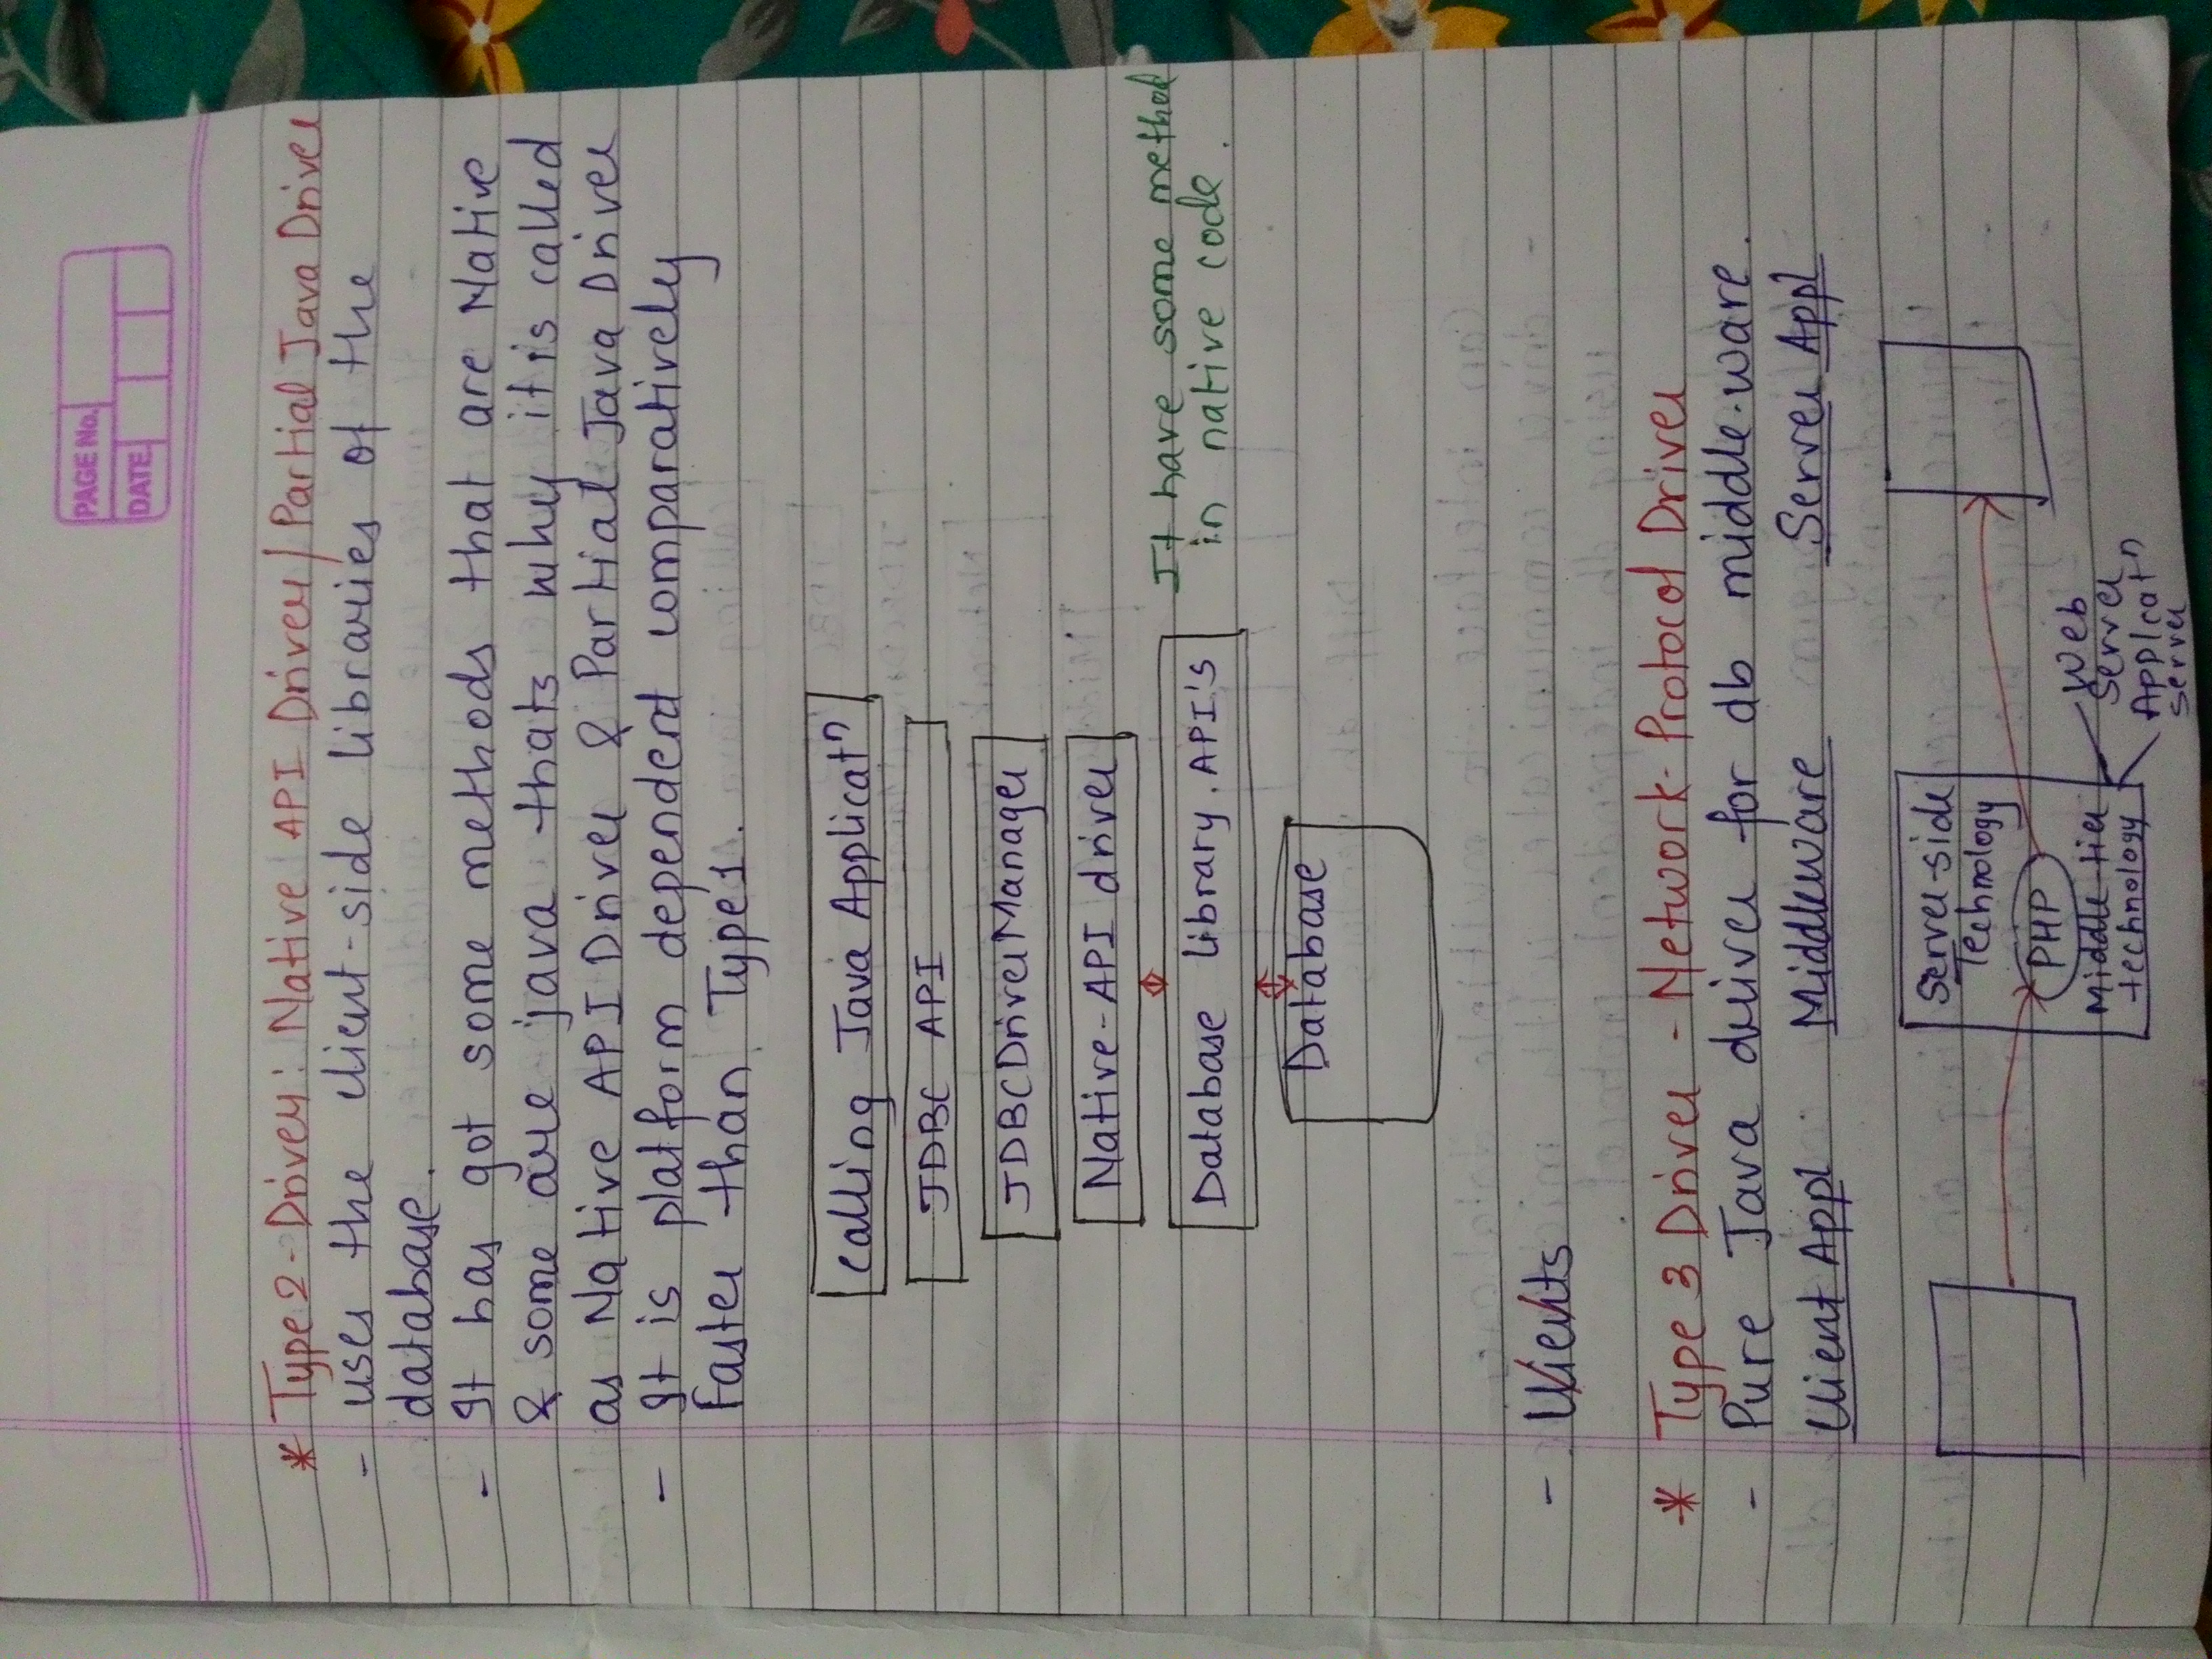 PAGE No.
DATE
* Type 2 - Driver : Native API Driver / Partial Java Driver
- uses the client-side libraries of the
database.
- It has got some methods that are Native
& some are java thats why it is called
as Native API Driver & Partial Java Driver
- It is platform dependent comparatively
Faster than Type 1.
Calling Java Applicatn
JDBC API
JDBCDriverManager
Native-API driver
Database library. API's
It have some method
in native code.
Database
- Clients
* Type 3 Driver - Network-Protocol Driver
- Pure Java driver for db middle-ware.
Client Appl Middleware Server Appl
Server-side
Technology
PHP
Middle-tier
technology
Web
Server
Applcatn
server